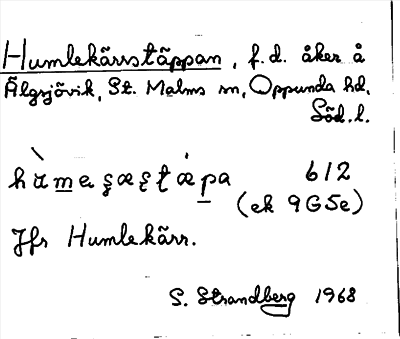 Humlekärrstäppan, f.d. åker å
Älgsjövik, St. Malms sn, Oppunda hd,
Söd. l.
612
(ek 9G5e)
Jfr Humlekärr.
S. Strandberg 1968